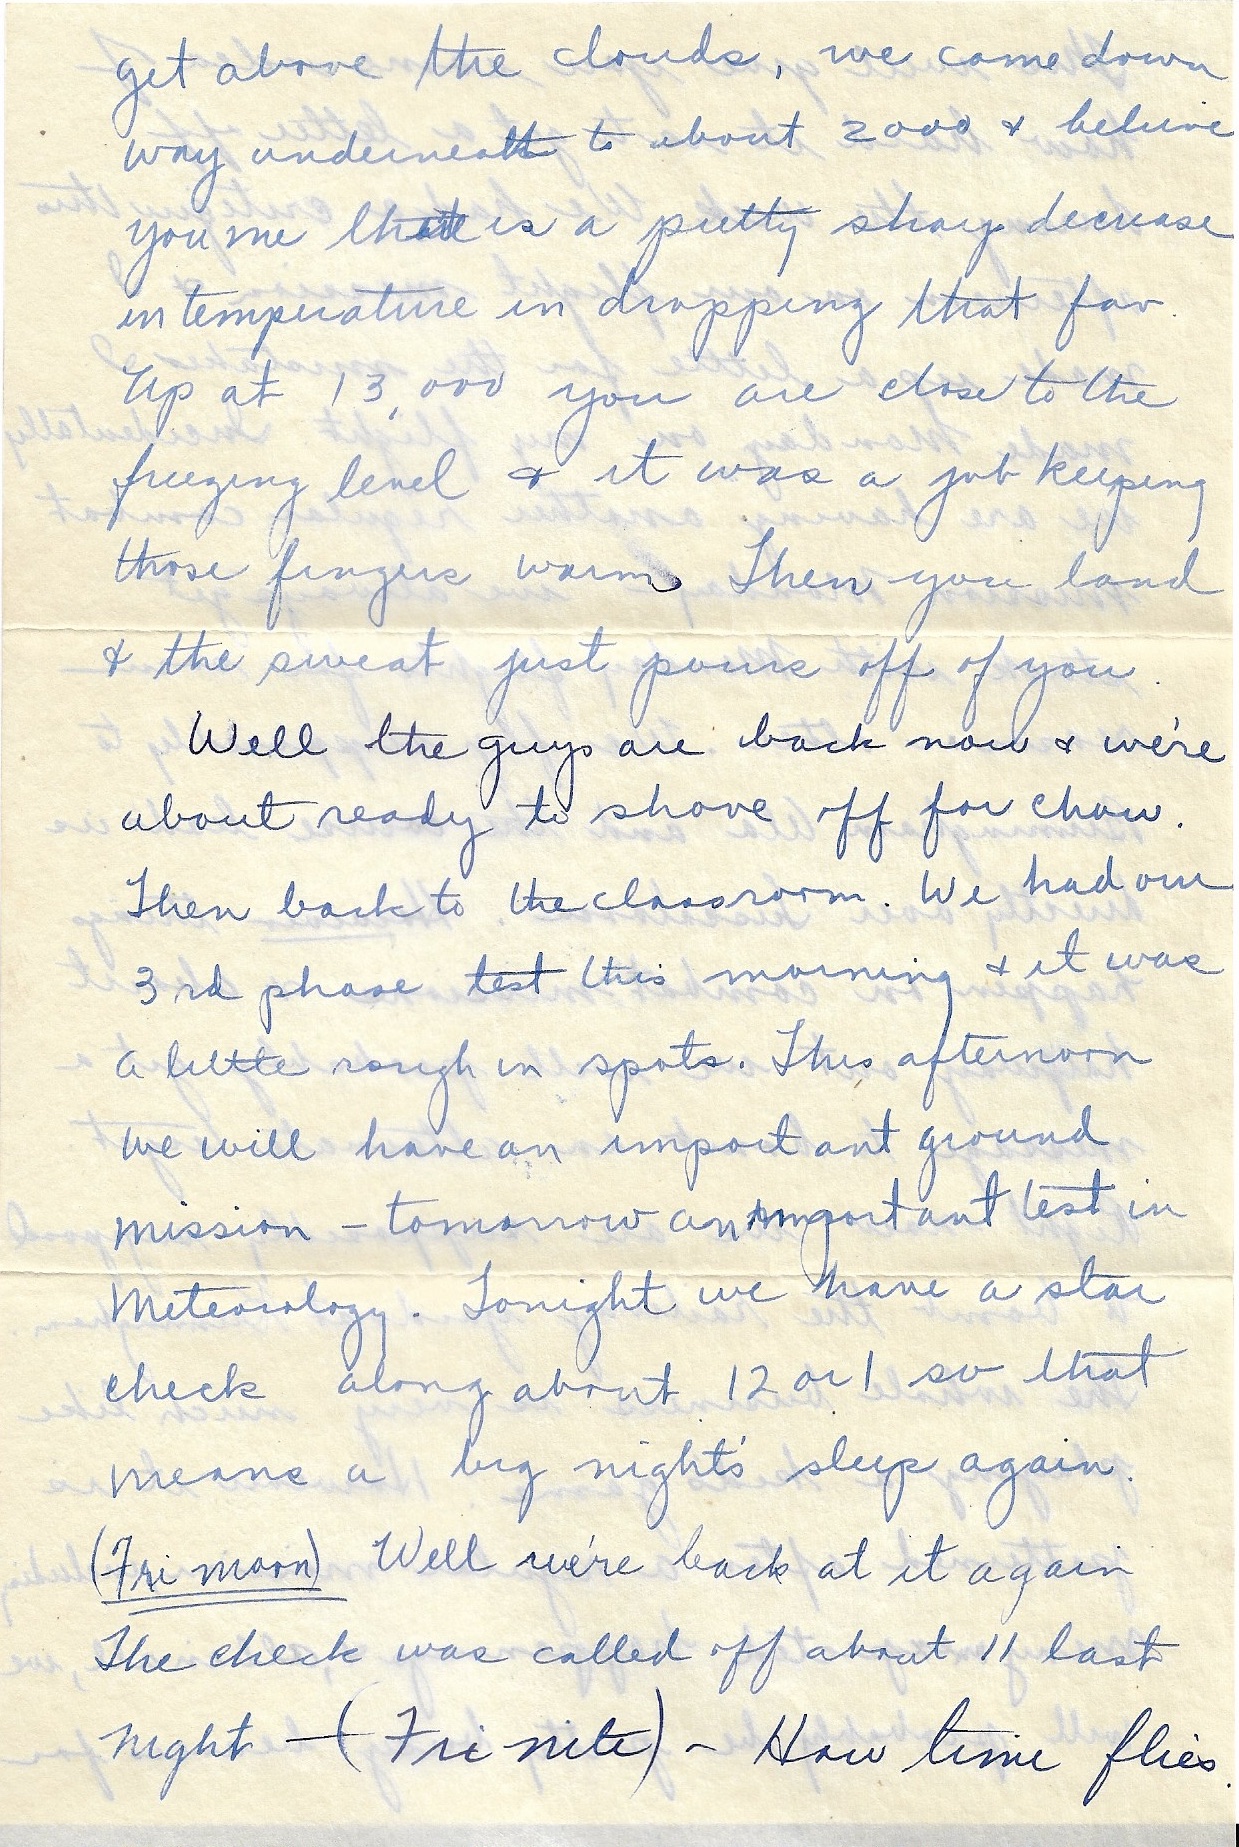 get above the clouds, we came down
way underneath to about 2000 & believe
you me that is a pretty sharp decrease
in temperature in dropping that far.
Up at 13,000 you are close to the
freezing level & it was a job keeping
those fingers warm. Then you land
& the sweat just pours off of you.
Well the guys are back now & we're
about ready to shove off for chow.
Then back to the classroom. We had our
3rd phase test this morning & it was
a little rough in spots. This afternoon
we will have an important ground
mission – tomorrow an important test in
Meteorology. Tonight we have a star
check along about 12 or 1 so that
means a big night's sleep again.
(Fri moon) Well we're back at it again
The check was called off about 11 last
night – (Fri nite) – How time flies.